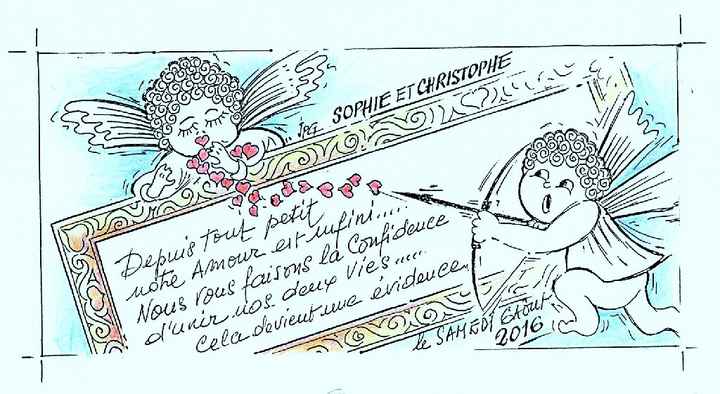 SOPHIE ET CHRISTOPHE
Depuis tout petit
notre Amour est infini.....
Nous vous faisons la Confidence
d'unir nos deux Vies.....
Cela devient une évidence
le SAMEDI 6 Août
2016